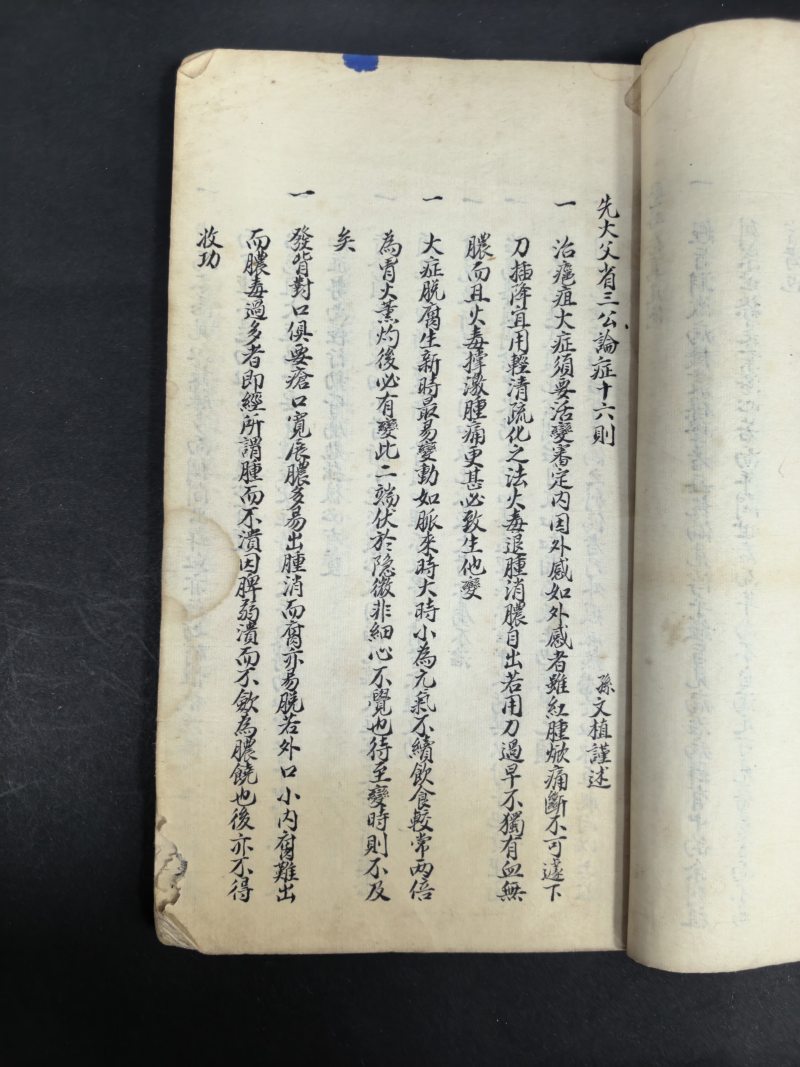 先大父省三公論症十六則
孫文植謹述
一 治瘡疽大症須要活變審定內因外感如外感者雖紅腫焮痛斷不可遽下
刀插降宜用輕清疏化之法火毒退腫消膿自出若用刀過早不獨有血無
膿而且火毒撐激腫痛更甚必致生他變
一 大症脫腐生新時最易變動如脈來時大時小為元氣不續飲食較常兩倍
為胃火薰灼後必有變此二端伏於隐微非細心不覺也待至變時則不及
矣
一 發背對口俱要瘡口寬展膿多易出腫消而腐亦易脫若外口小內腐難出
而膿毒過多者即經所謂腫而不潰因脾弱潰而不斂為膿饒也後亦不得
收功